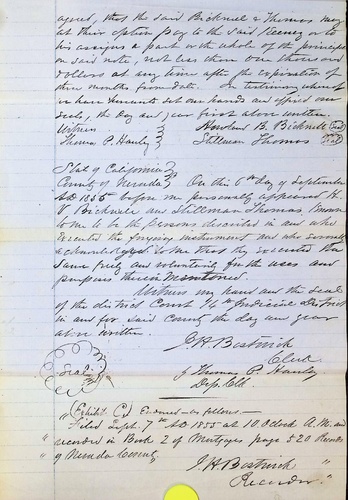 agreed, that the said Bicknell & Thomas may
at their option pay to the said Keeney or to
his assigns a part or the whole of the principal
on said note, not less than one thousand
dollars at any time after the expiration of
three months from date. In testimony whereof
we have hereunto set our hands and affixed our
seals, the day and year first above written.
Witness } Howland B. Bicknell (Seal)
Thomas P. Hawley } Stillman Thomas (Seal)
State of California }
County of Nevada } On this 6th day of September
AD 1855 before me personally appeared H.
B. Bicknell and Stillman Thomas, known
to me to be the persons described in and who
executed the foregoing instrument and who
acknowledged to me that they executed the
same freely and voluntarily for the uses and
purposes therein mentioned.
Witness my hand and the seal
of the district Court 14th Judicial District
in and for said County the day and year
above written.
J H Bostwick
Clerk
Seal
by Thomas P. Hawley
Dep. Clk
"(Exhibit C) Endorsed as follows
Filed Sept. 7th AD 1855 at 10 Oclock A.M. and
" recorded in Book 2 of Mortgages page 520 Records "
" of Nevada County. "
" J H Bostwick "
Recorder "